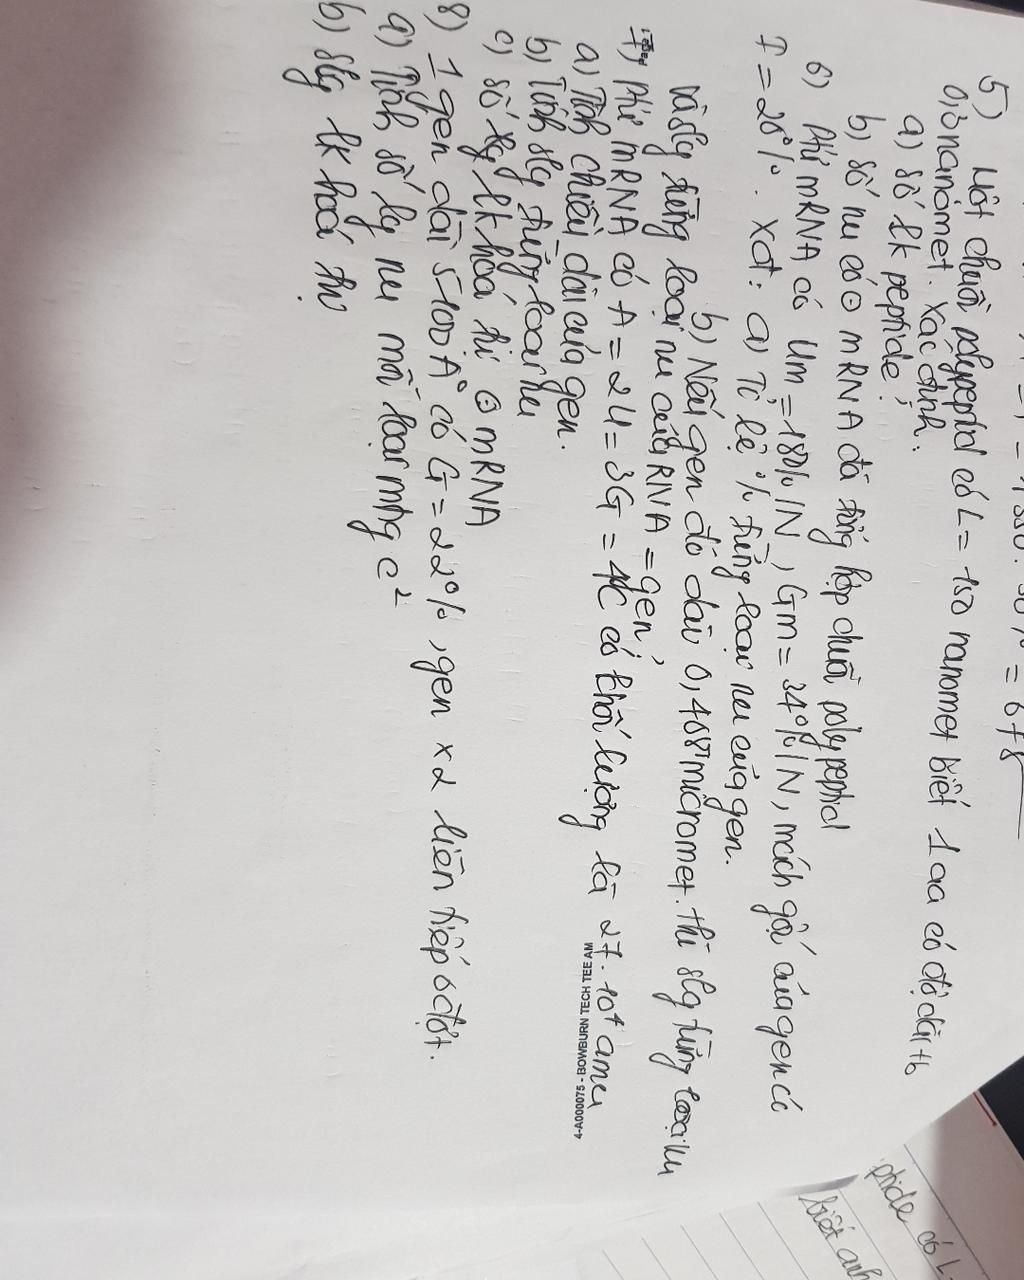 = 1 = 1500. 30% = 678
5) Một chuỗi polypeptid có L = 150 nanomet biết 1 aa có độ dài tb
0,3 nanomet. Xác định.
a) Số lk peptide?
b) Số nu có ở mRNA đã tổng hợp chuỗi polypeptid
6) Ptử mRNA có Um = 18% /N, Gm = 34% /N, mạch gốc của gen có
T = 20%. Xđ: a) Tỉ lệ % từng loại nu của gen.
b) Nếu gen đó dài 0,408 micromet. thì slg từng loại nu
và slg từng loại nu của RNA = gen?
7) Ptử mRNA có A = 2U = 3G = 4C có khối lượng là 27.10⁴ amu
a) Tính chiều dài của gen.
b) Tính slg từng loại nu
c) Số lg lk hoá trị ở mRNA
8) 1 gen dài 5100 A° có G = 22%, gen x2 liên tiếp 6 đợt.
a) Tính số lg nu mỗi loại mtg c²
b) slg lk hoá trị
4-A000075 - BOWBURN TECH TEE AM
ptide có L
biết anh